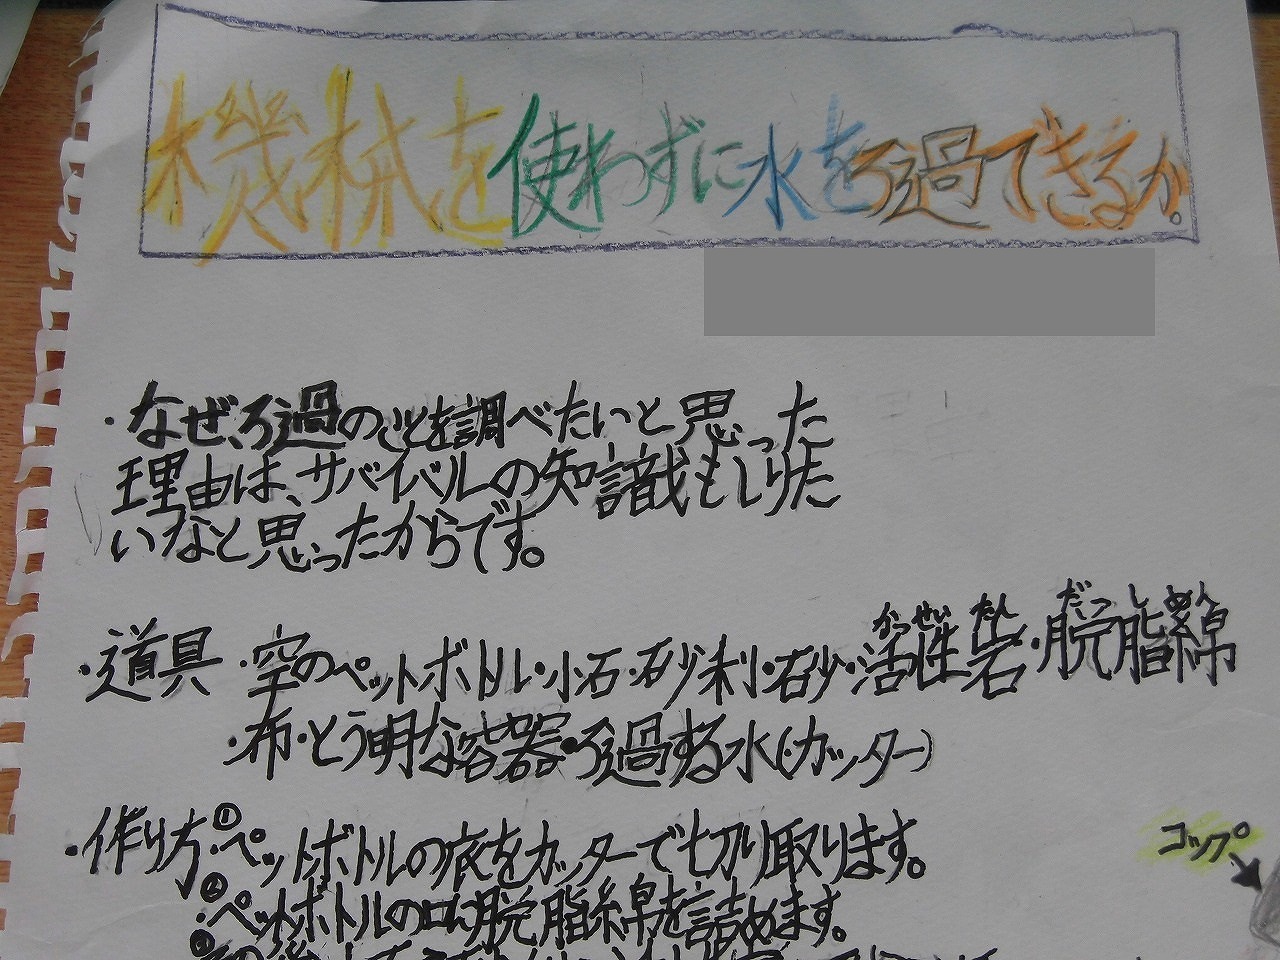 機械を使わずに水をろ過できるか。
・なぜ、ろ過のことを調べたいと思った
理由は、サバイバルの知識もしりた
いなと思ったからです。
・道具・空のペットボトル・小石・砂利・砂・活性炭・脱脂綿
かっせいたん だっしめん
・布・とう明な容器・ろ過する水(・カッター)
・作り方①・ペットボトルの底をカッターで切り取ります。
コップ
②・ペットボトルの口に脱脂綿を詰めます。
③